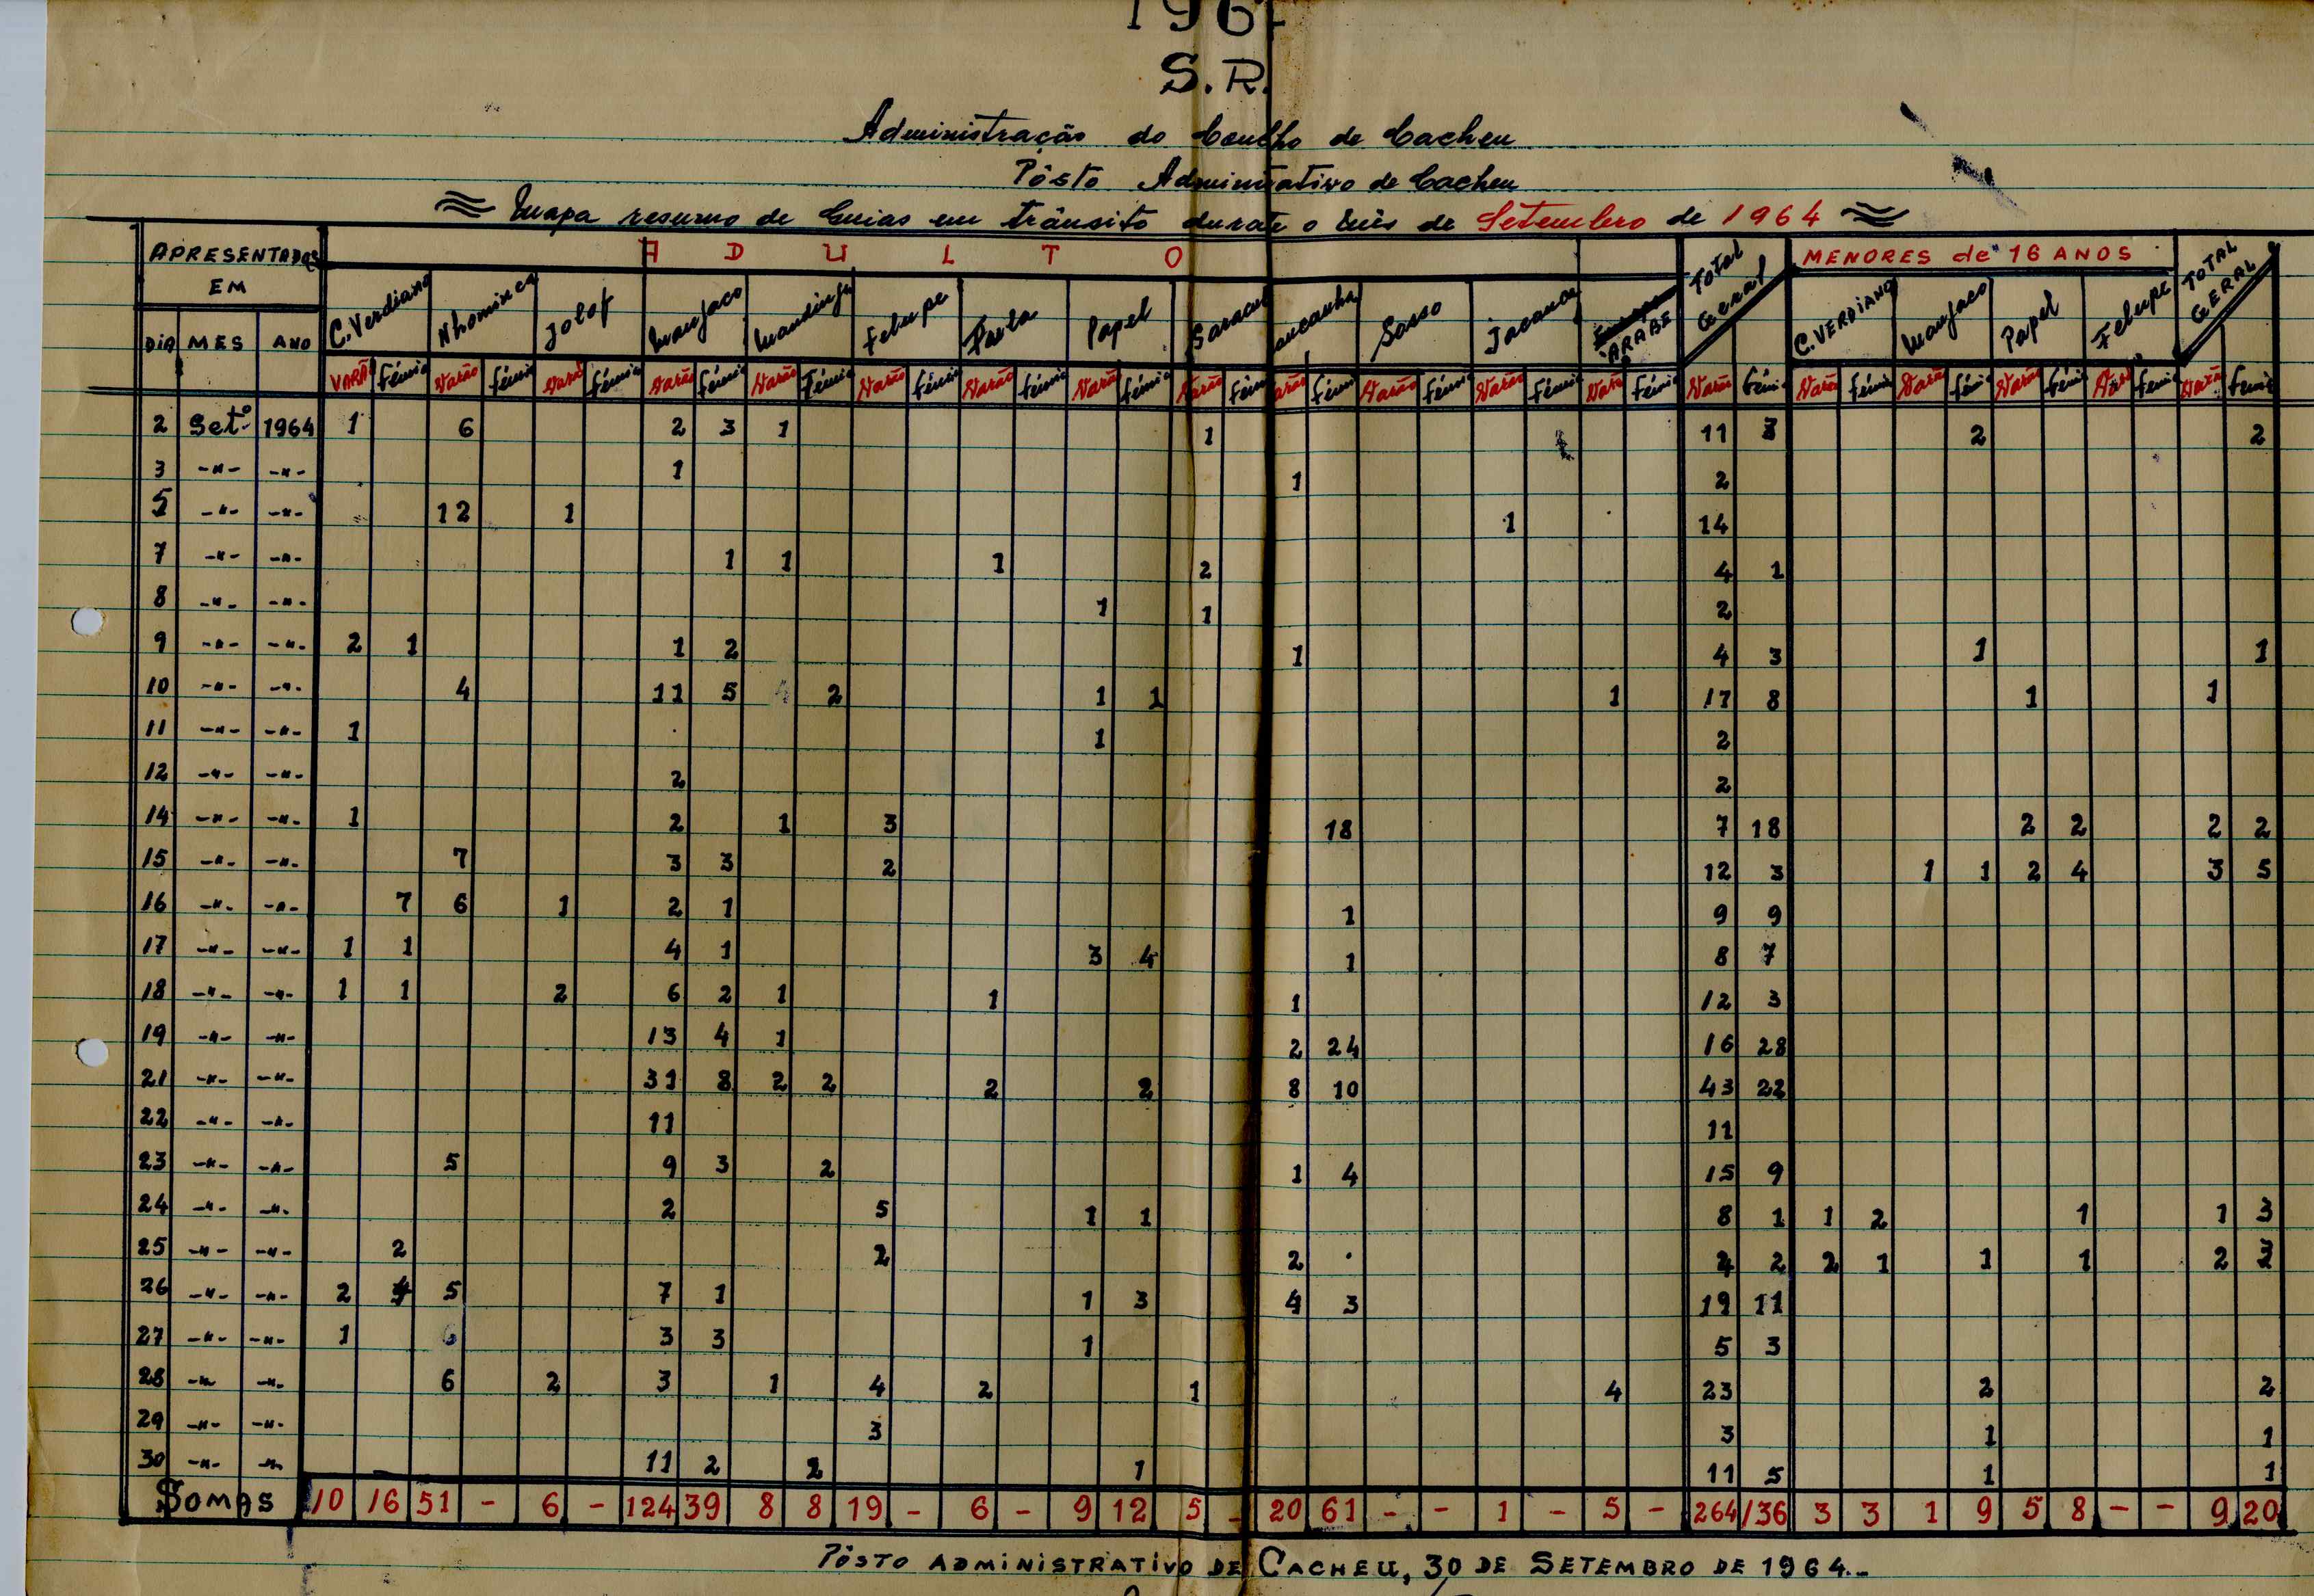 196
S.R.
Administração do Conclho de Cacheu
Pôsto Administrativo de Cacheu
Mapa resumo de Guias em trânsito durate o mês de Setembro de 1964
APRESENTADAS EM ADULTO Total Geral MENORES de 16 ANOS TOTAL GERAL
DIA MES ANO C. Verdiano Nhominca Jolof Manjaco Mandinga Felupe Fula Papel Saracul ancanha Sosso Jacanca ARABE C. VERDIANO Manjaco Papel Felupe
VARÃ Fémi Varão Fémi Varã Fémi Varão Fémi Varão Fémi Varão Fémi Varão Fémi Varã Fémi Varão Fém arão Fémi Varão Fémi Varão Fémi Varã Fémi Varão Fémi Varão Fémi Varã Fémi Varão Fémi Varã Femi Varã Femi
2 Set.º 1964 1 6 2 3 1 1 11 3 2 2
3 -"- -"- 1 1 2
5 -"- -"- 12 1 1 14
7 -"- -"- 1 1 1 2 4 1
8 -"- -"- 1 1 2
9 -"- -"- 2 1 1 2 1 4 3 1 1
10 -"- -"- 4 11 5 2 1 1 1 17 8 1 1
11 -"- -"- 1 1 2
12 -"- -"- 2 2
14 -"- -"- 1 2 1 3 18 7 18 2 2 2 2
15 -"- -"- 7 3 3 2 12 3 1 1 2 4 3 5
16 -"- -"- 7 6 1 2 1 1 9 9
17 -"- -"- 1 1 4 1 3 4 1 8 7
18 -"- -"- 1 1 2 6 2 1 1 1 12 3
19 -"- -"- 13 4 1 2 24 16 28
21 -"- -"- 31 8 2 2 2 2 8 10 43 22
22 -"- -"- 11 11
23 -"- -"- 5 9 3 2 1 4 15 9
24 -"- -"- 2 5 1 1 8 1 1 2 1 1 3
25 -"- -"- 2 2 2 4 2 2 1 1 1 2 3
26 -"- -"- 2 4 5 7 1 1 3 4 3 19 11
27 -"- -"- 1 3 3 1 5 3
28 -"- -"- 6 2 3 1 4 2 1 4 23 2 2
29 -"- -"- 3 3 1 1
30 -"- -"- 11 2 2 1 11 5 1 1
SOMAS 10 16 51 - 6 - 124 39 8 8 19 - 6 - 9 12 5 - 20 61 - - 1 - 5 - 264 136 3 3 1 9 5 8 - - 9 20
PÔSTO ADMINISTRATIVO DE CACHEU, 30 DE SETEMBRO DE 1964.-